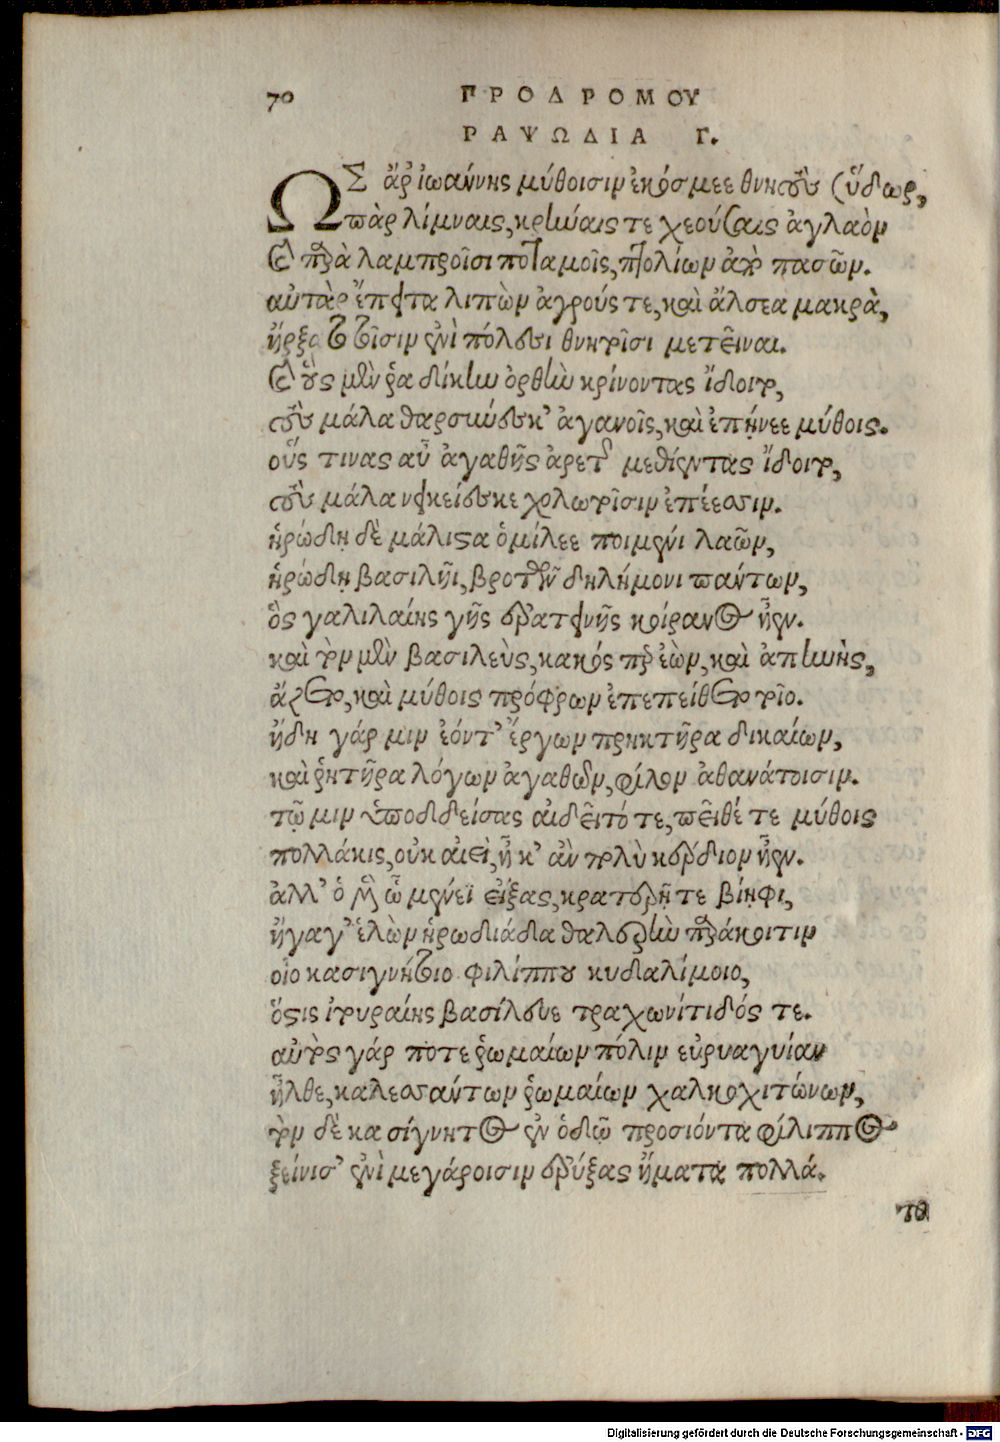 70 ΠΡΟΔΡΟΜΟΥ
ΡΑΨΩΔΙΑ Γ.
ΩΣ ἄρ ἰωαννης μύθοισιν ἐκόσμεε θνητοὺς
ὕδωρ,
πὰρ λίμναις, κρήναις τε χεούσαις ἀγλαὸν
καὶ παρὰ λαμπροῖσι ποταμοῖς, πτολίων ἀπὸ πασῶν.
αὐτὰρ ἔπειτα λιπὼν ἀγρούς τε, καὶ ἄλσεα μακρὰ,
ἤρξατο τοῖσιν ἐνὶ πόλεσι θνητοῖσι μετεῖναι.
καὶ οὓς μὲν ῥα δίκην ὀρθὴν κρίνοντας ἴδοιτο,
τοὺς μάλα θαρσύνεσκ' ἀγανοῖς, καὶ ἐπῄνεε μύθοις.
οὕς τινας αὖ ἀγαθῆς ἀρετῆς μεθιέντας ἴδοιτο,
τοὺς μάλα νεικείεσκε χολωτοῖσιν ἐπέεσσιν.
ἡρώδῃ δὲ μάλιστα ὁμίλεε ποιμένι λαῶν,
ἡρώδῃ βασιλῆι, βροτῶν δηλήμονι πάντων,
ὃς γαλιλαίης γῆς ἐρατεινῆς κοίρανος ἦεν.
καὶ τὸν μὲν βασιλεὺς, κακός περ ἐὼν, καὶ ἀπηνὴς,
ἅζετο, καὶ μύθοις πρόφρων ἐπεπείθετο τοῖο.
ᾔδη γάρ μιν ἐόντ' ἔργων πρηκτῆρα δικαίων,
καὶ ῥητῆρα λόγων ἀγαθῶν, φίλον ἀθανάτοισιν.
τῷ μιν ὑποδδείσας αἰδεῖτό τε, πείθετό τε μύθοις
πολλάκις, οὐκ αἰεὶ, ἦ κ' ἂν πολὺ κέρδιον ἦεν.
ἀλλ' ὁ γὰρ ᾧ μένεϊ εἴξας, κρατερῇ τε βίηφι,
ἤγαγ' ἑλὼν ἡρωδιάδα θαλερὴν παράκοιτιν
οἷο κασιγνήτοιο φιλίππου κυδαλίμοιο,
ὅστις ἰτυραίης βασίλευε τραχωνίτιδός τε.
αὐτὸς γάρ ποτε ῥωμαίων πόλιν εὐρυαγυίαν
ἦλθε, καλεσσάντων ῥωμαίων χαλκοχιτώνων,
τὸν δὲ κασίγνητος ἐν ὁδῷ προσιόντα φίλιππος
ξείνισ' ἐνὶ μεγάροισιν ἐρύξας ἤματα πολλά.
Digitalisierung gefördert durch die Deutsche Forschungsgemeinschaft - DFG